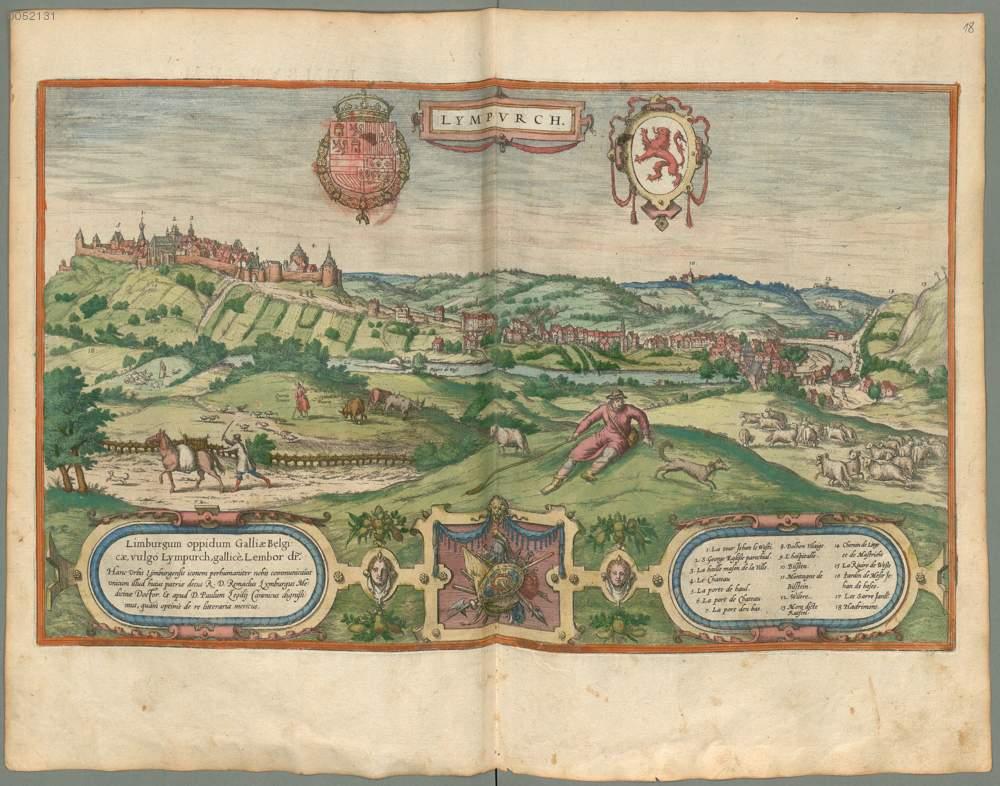 0052131
18
LYMPVRCH.
Riviere de Wese
Limburgum oppidum Galliæ Belgi-
cæ, vulgo Lympurch, gallicè Lembor dr.
Hanc Urbis Limburgensis iconem perhumaniter nobis communicabat
unicum illud huius patriæ decus R. D. Remaclus Lymburgus Me-
dicinæ Doctor. & apud D. Paulum Canonicus digniss-
mus, quàm optimè de re litteraria meritus.
1. La tour Jehan le
2. S. George Eglise parochial.
3. La halle maison de la ville.
4. Le Chateau
5. La porte de haut.
6. La port de Chateau
7. La port den bas.
8. Dolhen Vilage
9. L'hospitalle
10. Bilsten.
11. Montagne de
Bilstein.
12. Villers..
13. Mont dicte
14. Chemin de Liege
et de Mastricht
15. La Riviere de Wese
16. Jardin de Messr Je-
han de
17. Les Sarre
18. Hadrimont.